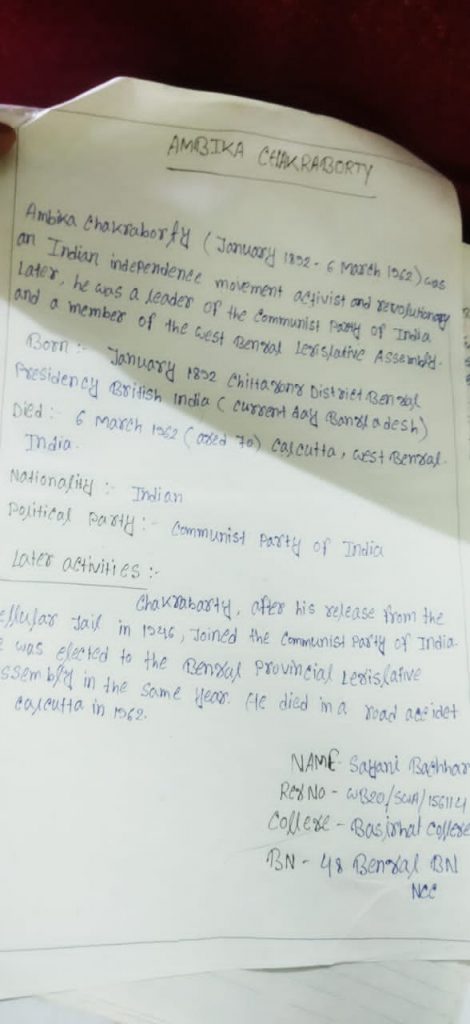 AMBIKA CHAKRABORTY
Ambika Chakraborty (January 1892 - 6 March 1962) was
an Indian independence movement activist and revolutionary
Later, he was a leader of the Communist Party of India
and a member of the West Bengal Legislative Assembly.
Born :- January 1892 Chittagong District Bengal
Presidency British India (current day Bangladesh)
Died :- 6 March 1962 (aged 70) Calcutta, West Bengal.
India.
Nationality :- Indian
Political party :- Communist Party of India
Later activities :-
Chakrabarty, after his release from the
ellular Jail in 1946, Joined the Communist Party of India.
e was elected to the Bengal Provincial Legislative
ssembly in the same year. He died in a road accidet
Calcutta in 1962.
NAME- Sayani Bachhar
Reg No - WB20/SWA/156114
College - Basirhat College
BN - 48 Bengal BN
NCC